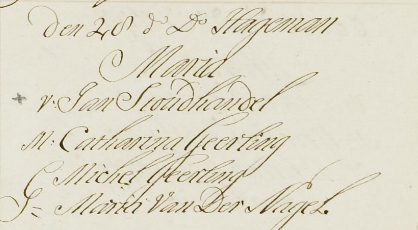 Den 28 d° D° Hageman
Maria
+ v: Jan Stoudhandel
M: Catharina Geerling
G Michel Geerling
G= Maria Van Der Nagel.